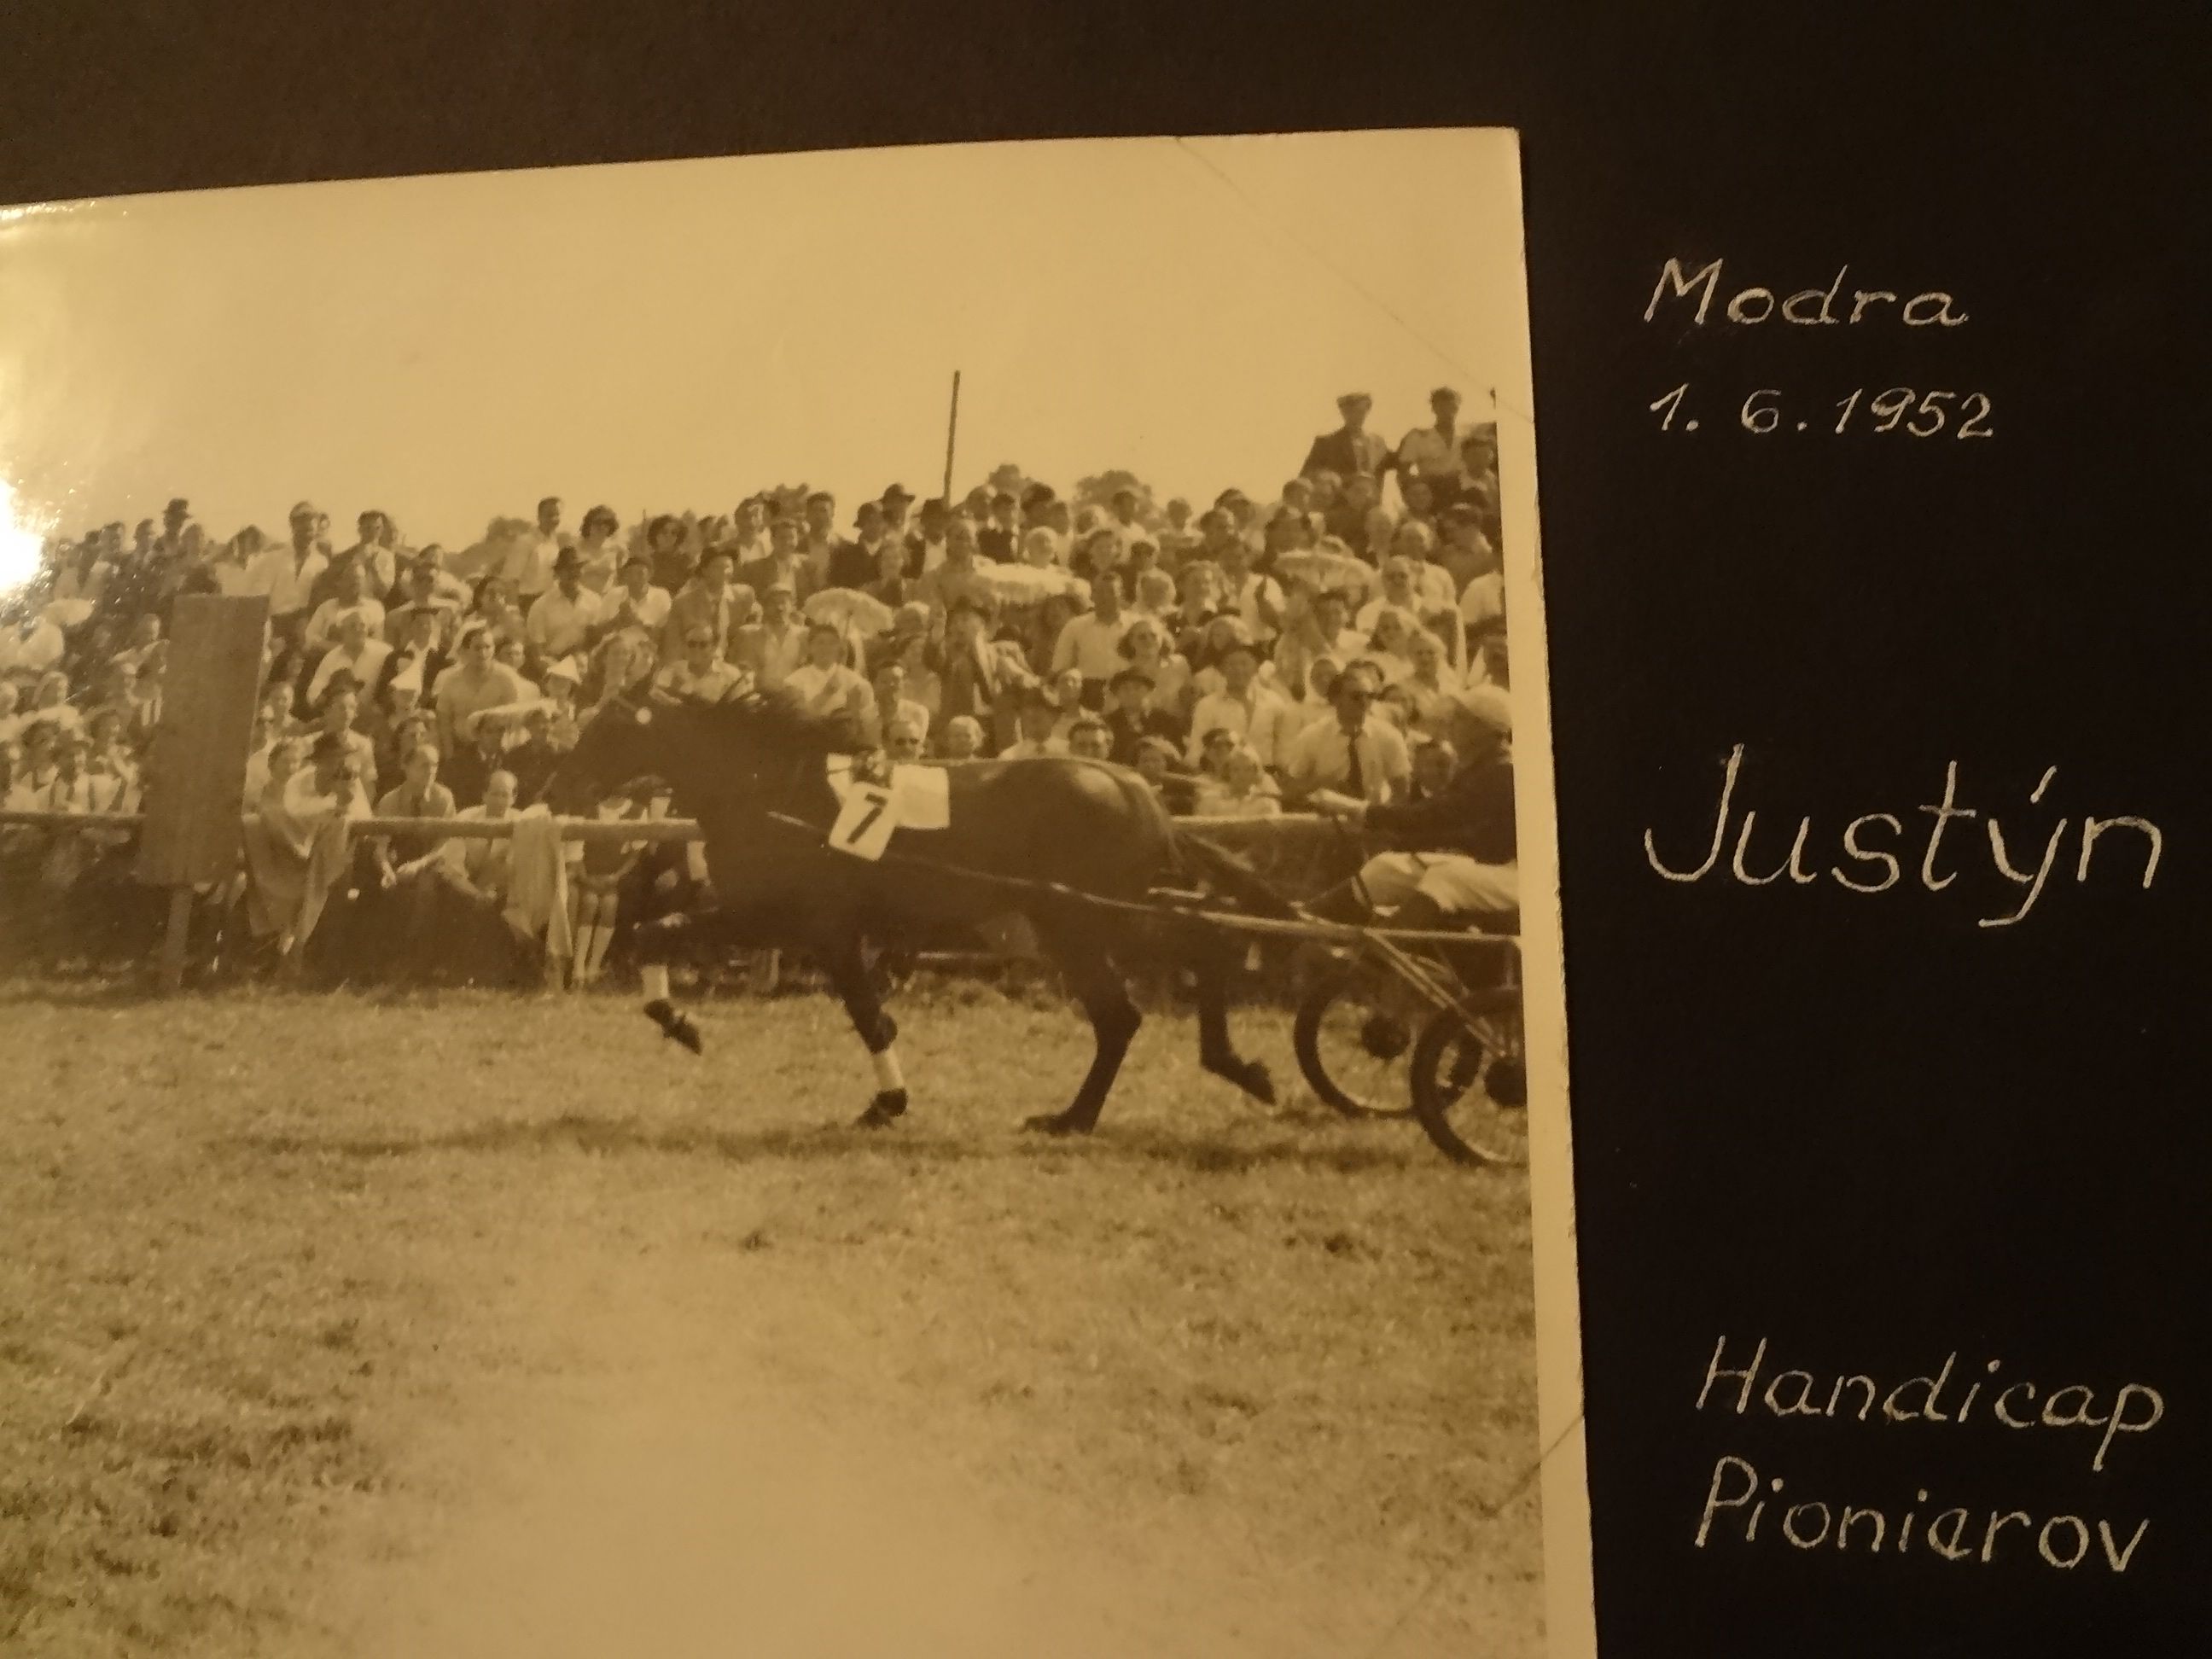 Modra
1. 6. 1952
7
Justýn
Handicap
Pionierov